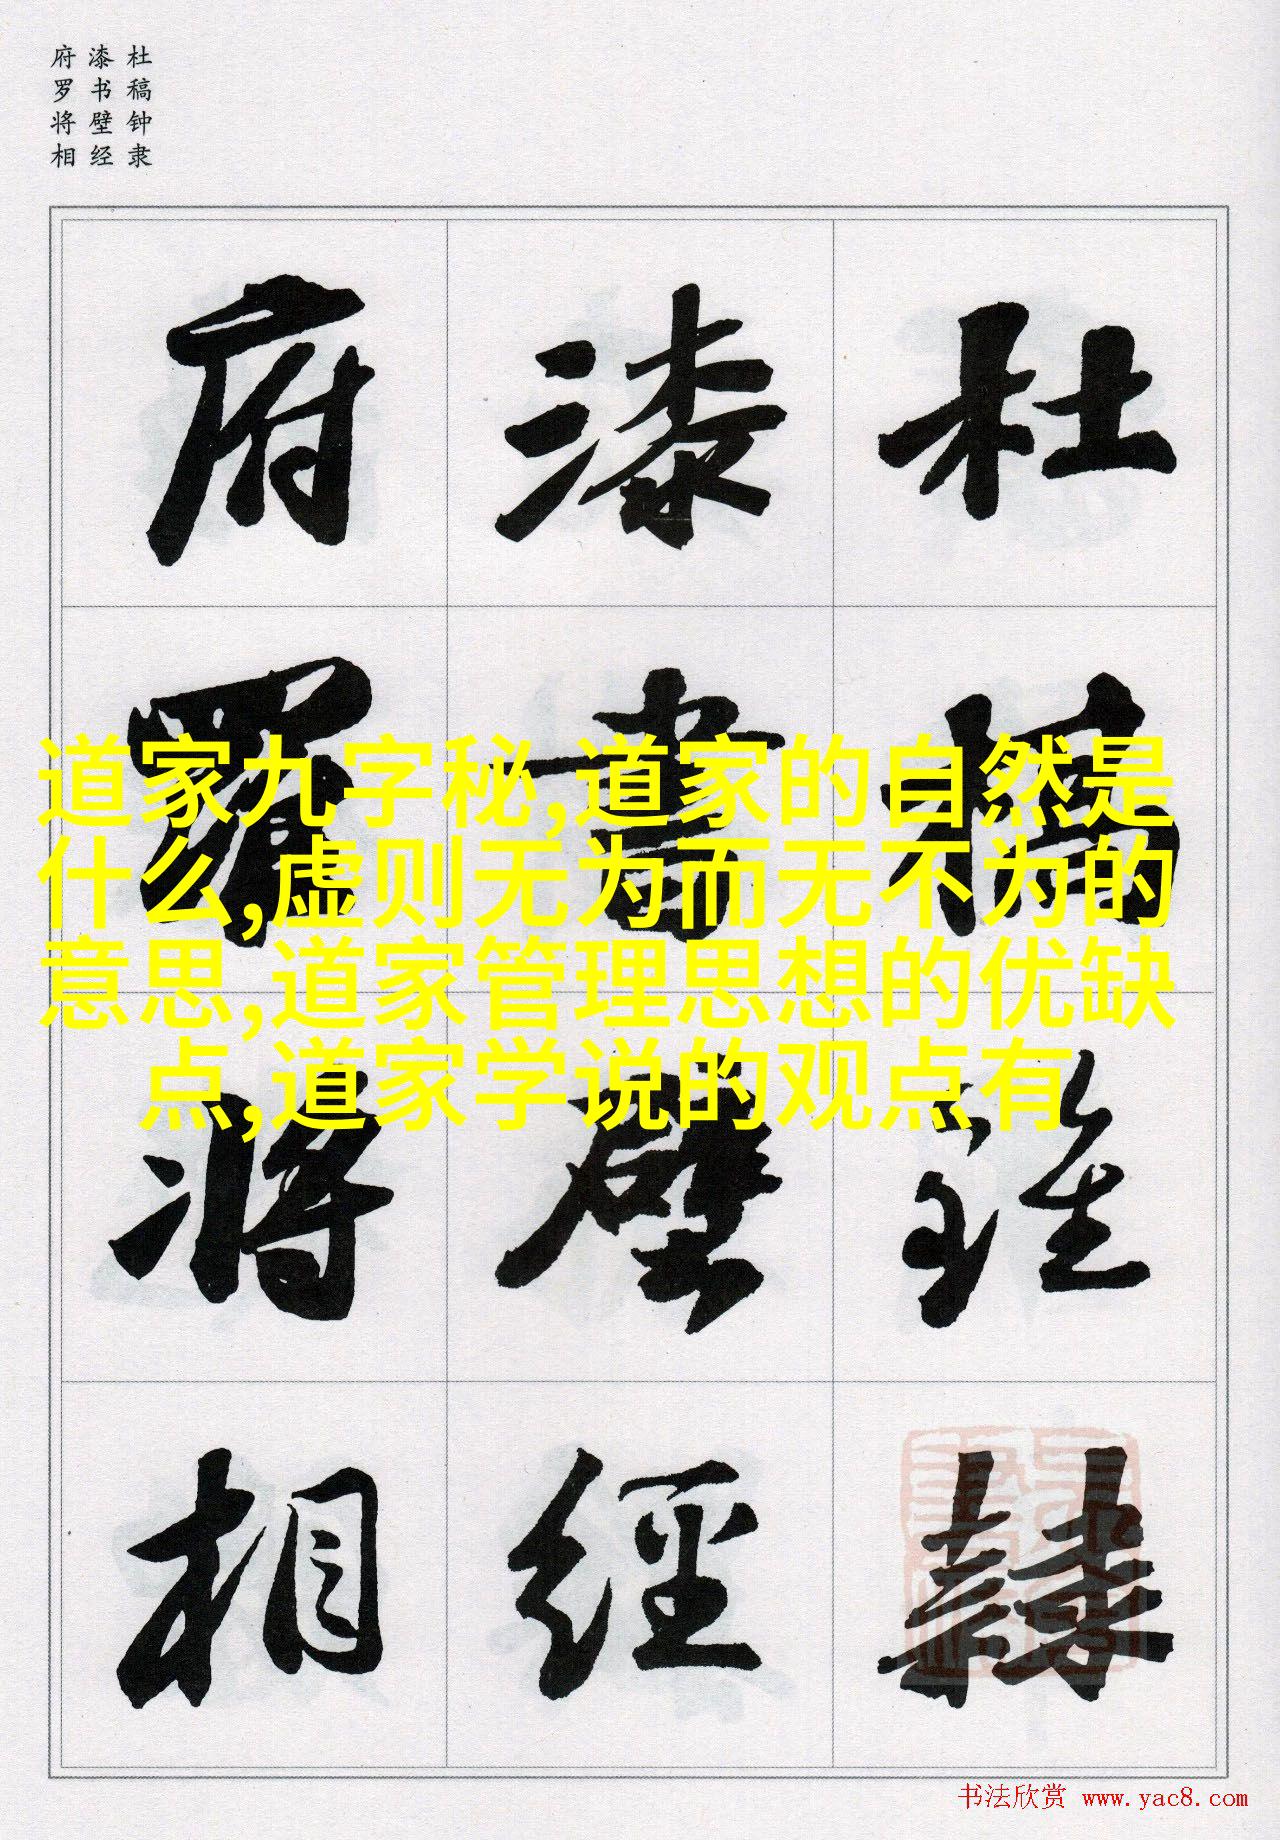 杜稿钟隶
漆书壁经
府罗将相
杜稾鍾隸
漆書壁經
府羅將相
道家九字秘,道家的自然是
什么,虚则无为而无不为的
意思,道家管理思想的优缺
点,道家学说的观点有
书法欣赏 www.yac8.com